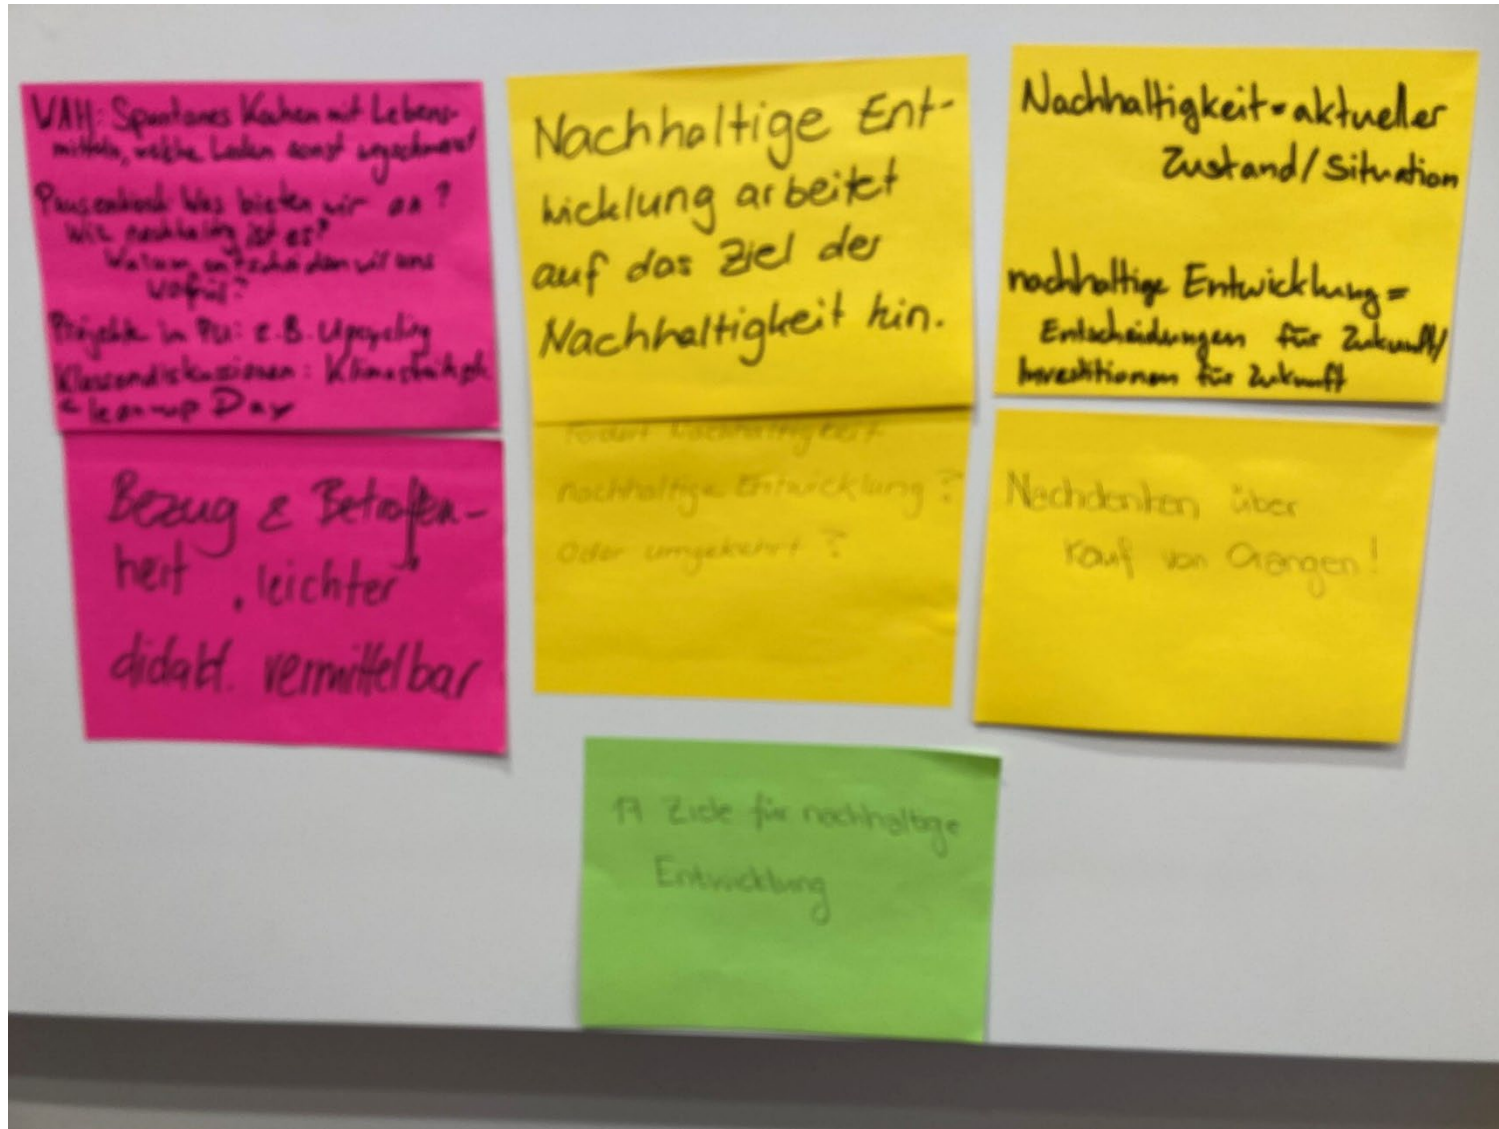 WAH: Spontanes Kochen mit Lebens-
mitteln, welche Laden sonst wegschmeisst
Pausenkiosk: Was bieten wir an?
Wie nachhaltig ist es?
Warum entscheiden wir uns
dafür?
Projekte im PU: z.B. Upcycling
Klassendiskussionen: Klimastreik
Clean-up Day
Bezug & Betroffen-
heit „leichter“
didakt. vermittelbar
Nachhaltige Ent-
wicklung arbeitet
auf das Ziel der
Nachhaltigkeit hin.
Fördert Nachhaltigkeit
nachhaltige Entwicklung?
Oder umgekehrt?
Nachhaltigkeit = aktueller
Zustand/Situation
nachhaltige Entwicklung =
Entscheidungen für Zukunft/
Investitionen für Zukunft
Nachdenken über
Kauf von Orangen!
17 Ziele für nachhaltige
Entwicklung